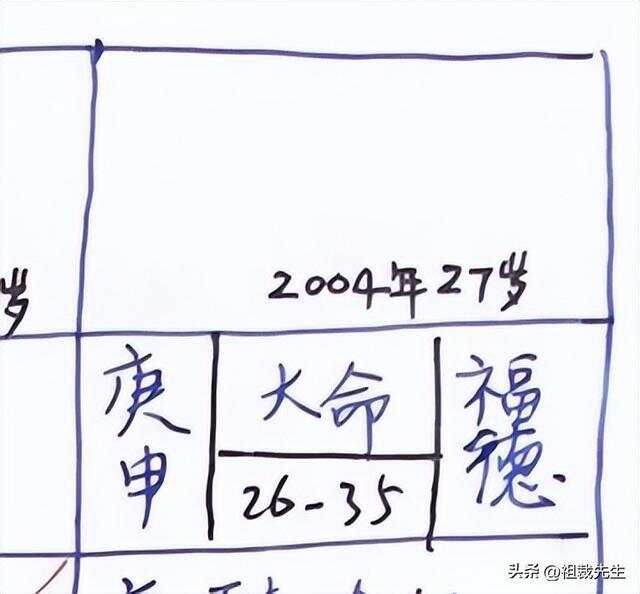 岁
2004年27岁
庚申
大命
福德
26-35
头条 @祖裁先生